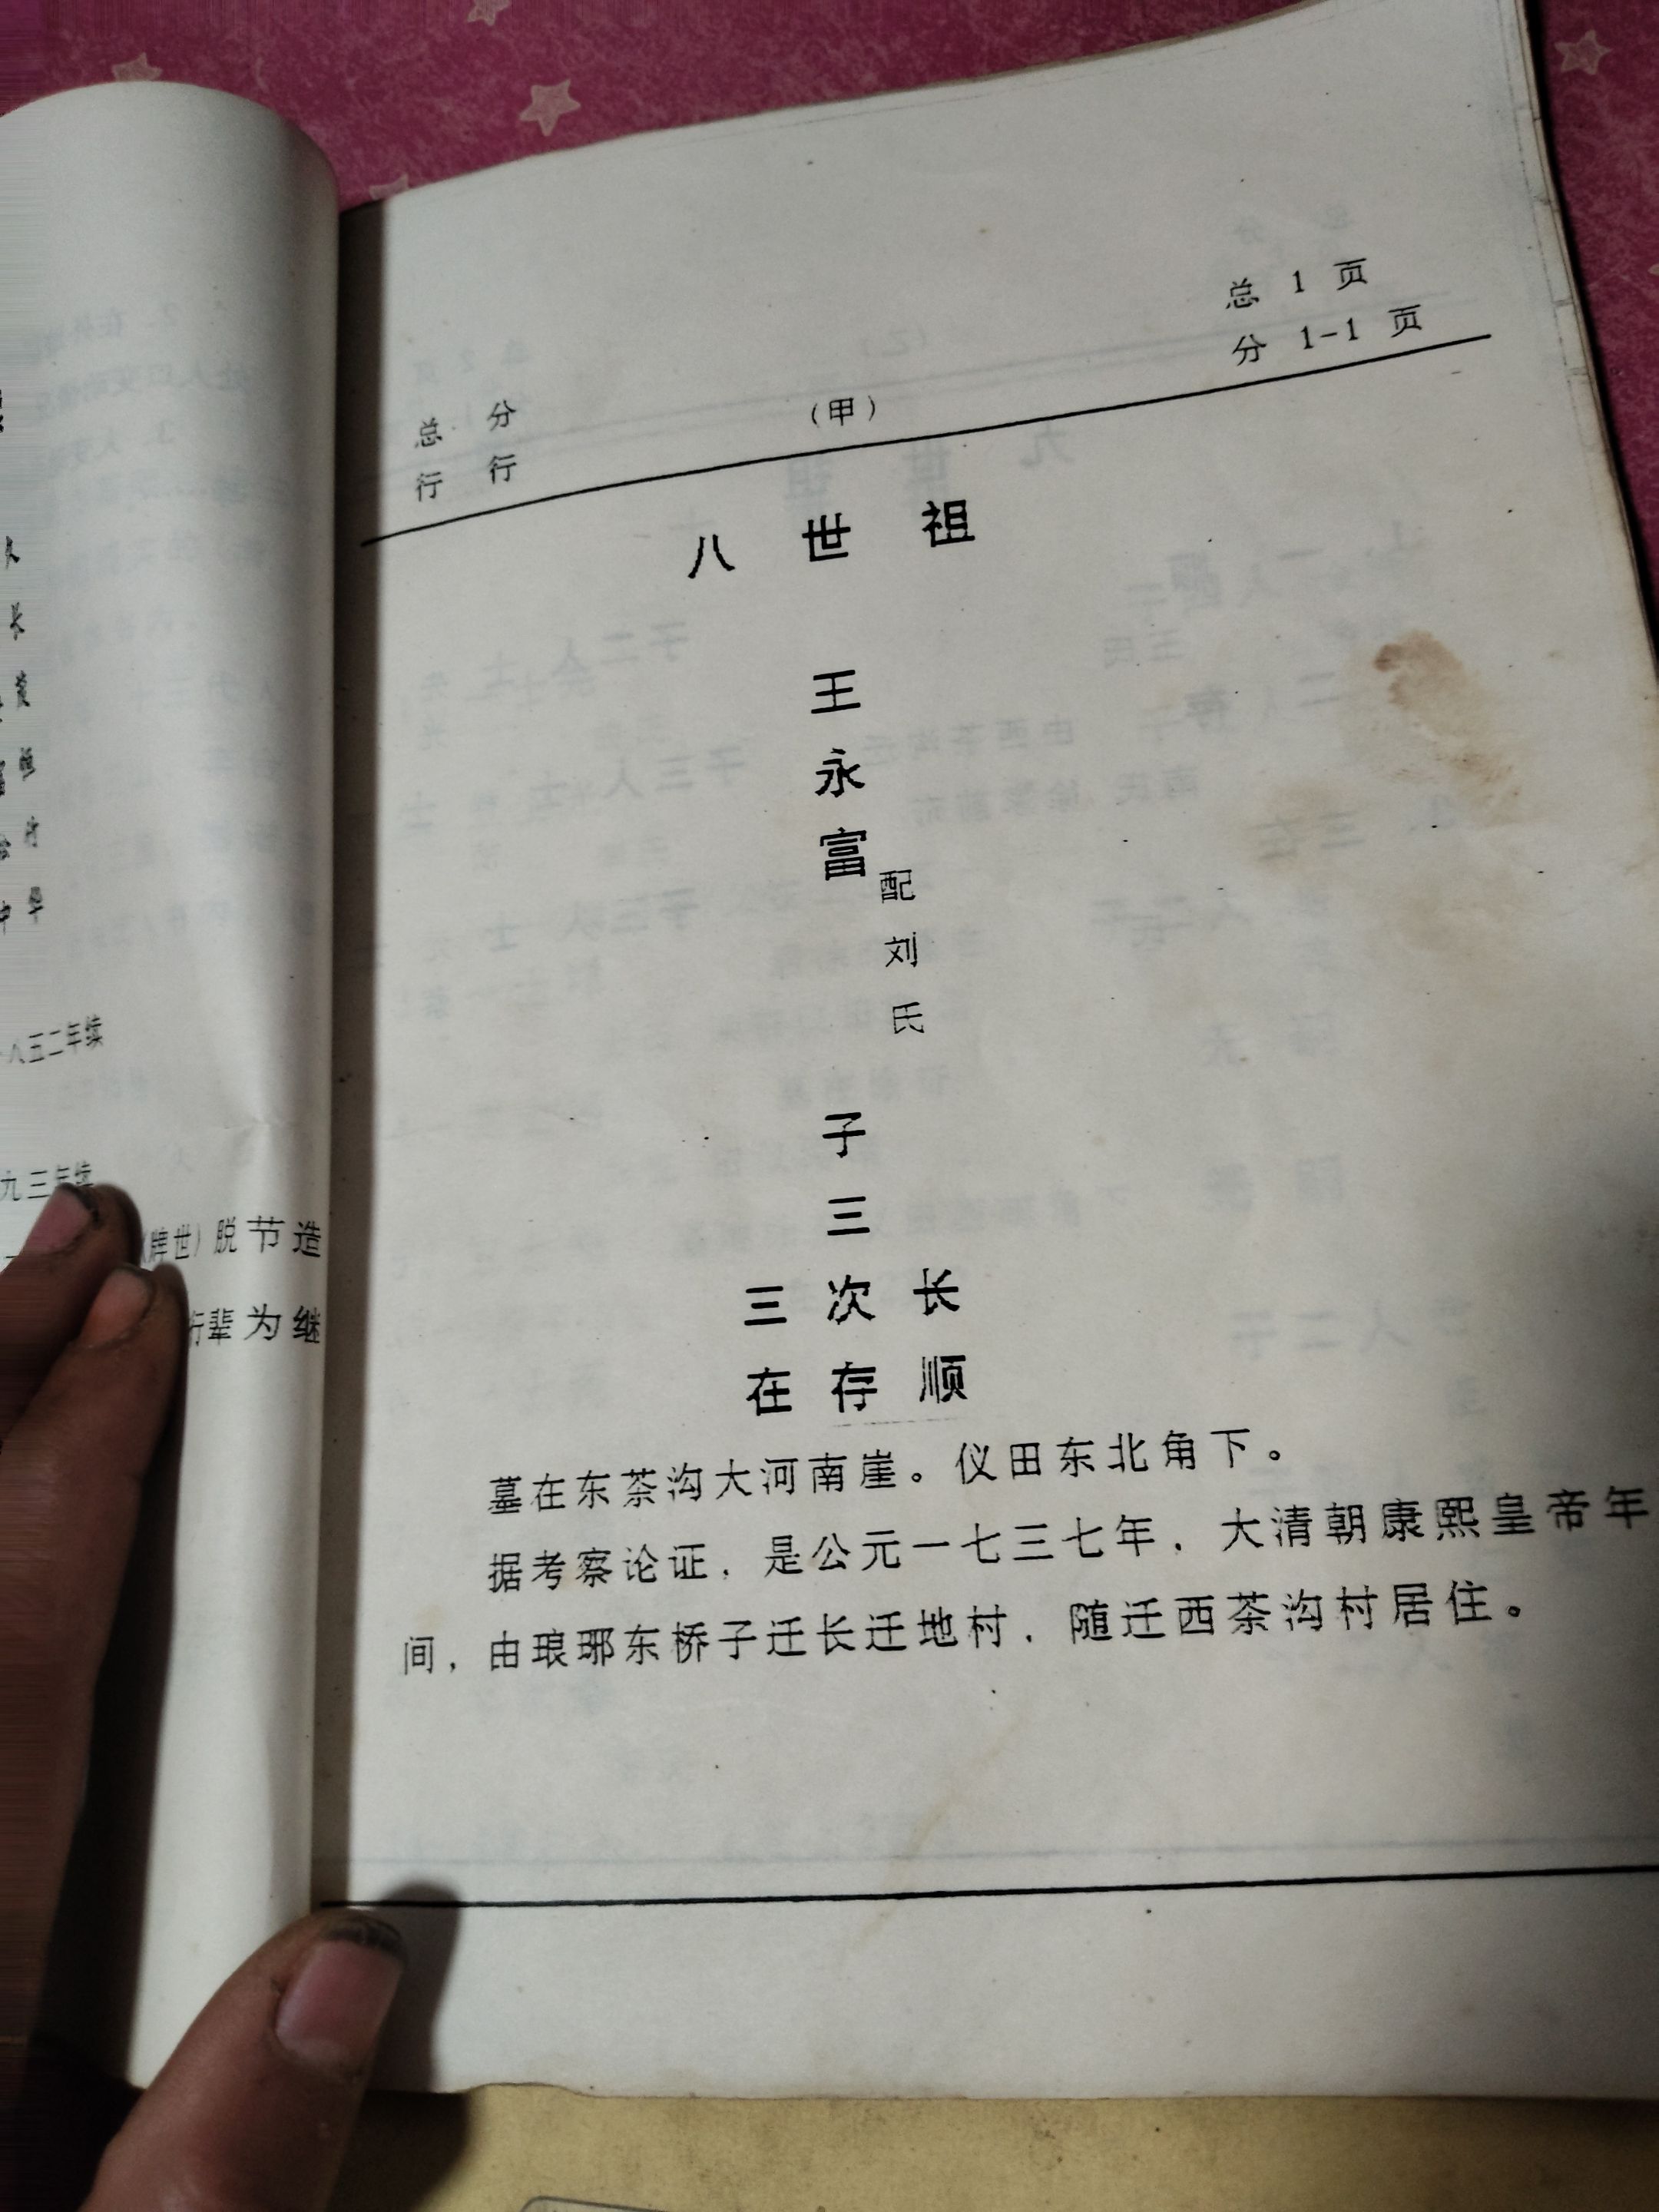 八五二年续
九三年续
(牌世)脱节造
行辈为继
总 1 页
分 1-1 页
总 分
行 行
(甲)
八世祖
王永富
配刘氏
子三
长顺
次存
三在
墓在东茶沟大河南崖。仪田东北角下。
据考察论证，是公元一七三七年，大清朝康熙皇帝年
间，由琅琊东桥子迁长迁地村，随迁西茶沟村居住。